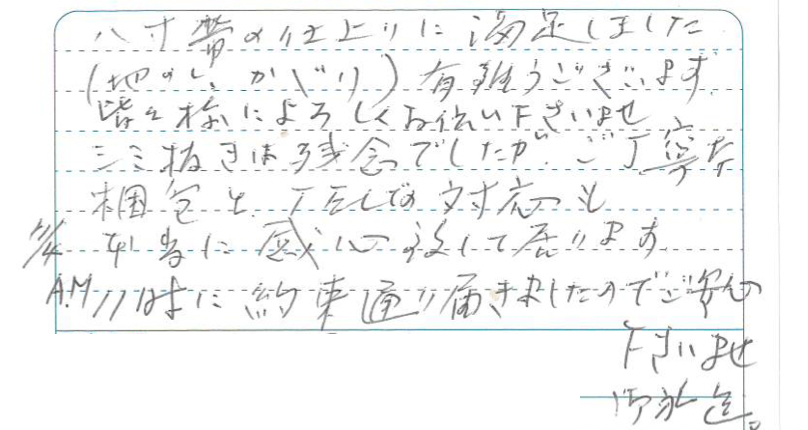 八寸帯の仕上りに満足しました
(地のし、かがり)有難うございます。
皆々様によろしくお伝い下さいませ
シミ抜きは残念でしたが、ご丁寧な
梱包と 対応も
本当に感心致して居ります。
A.M11時に約束通り届きましたのでご安心
下さいませ
御礼迄。